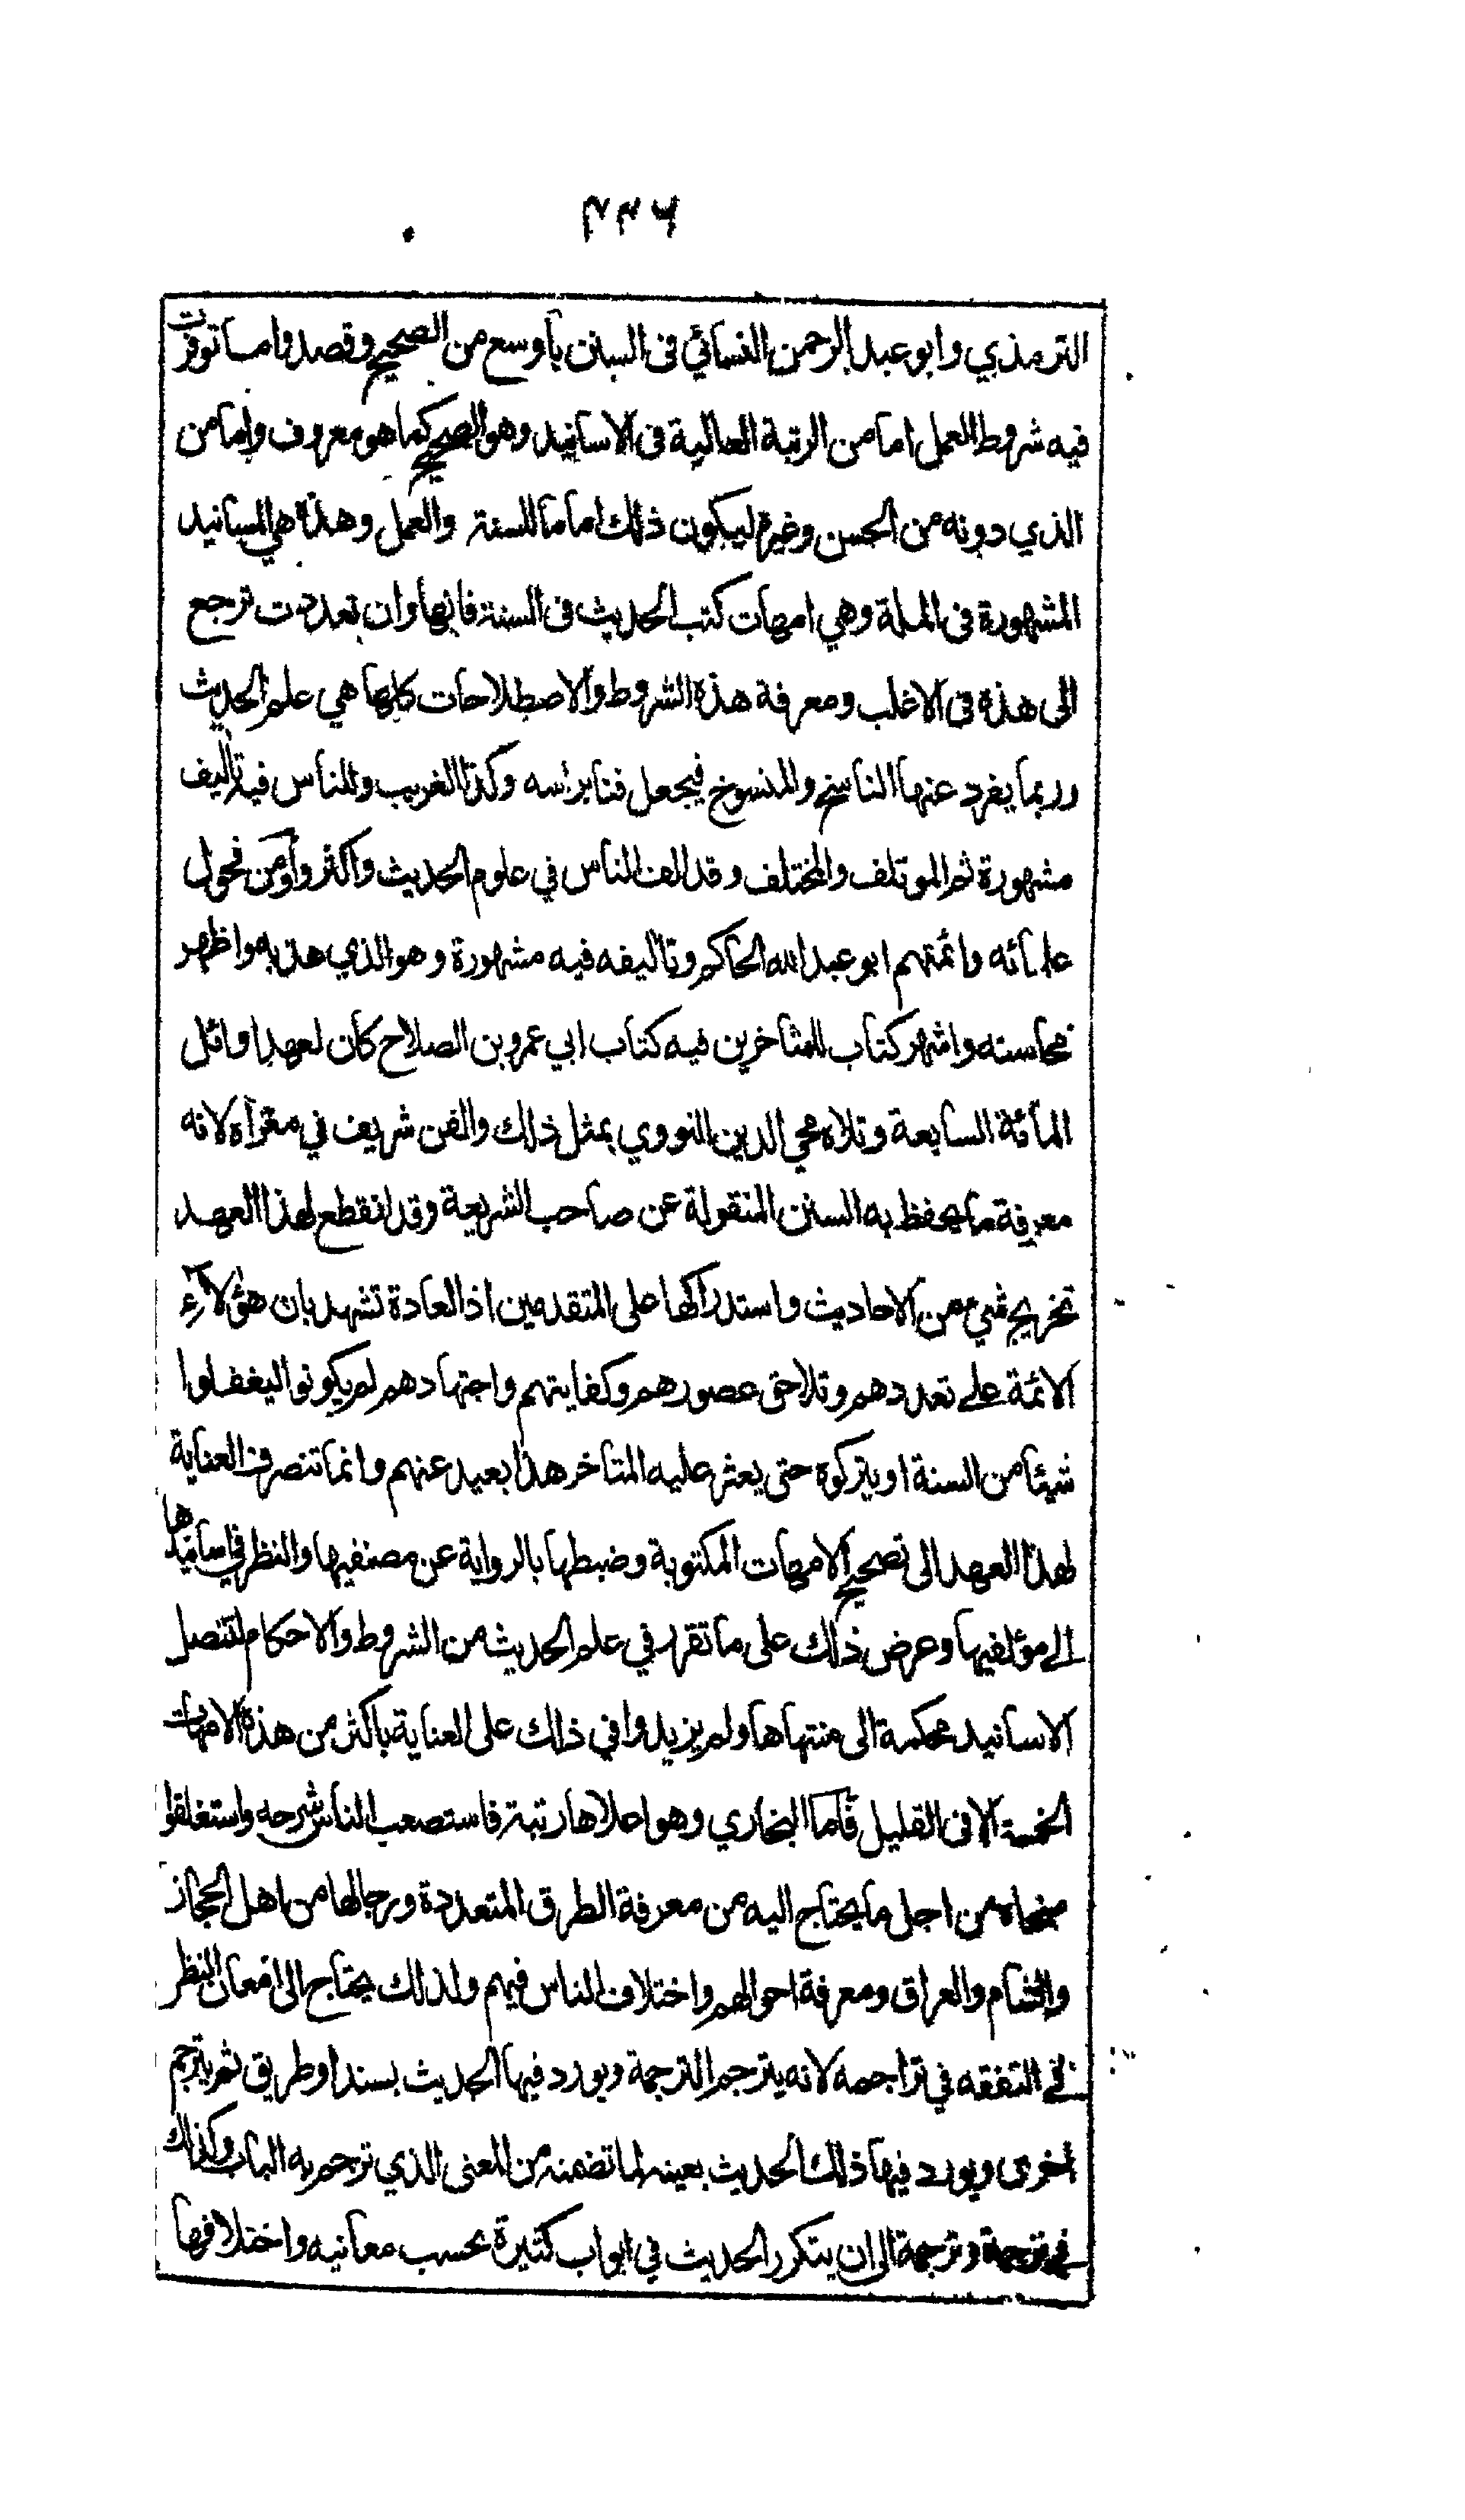 ۴۳۶
الترمذي وابو عبد الرحمن النسائي فى السنن بأوسع من الصحيح وقصدوا ما توفرت
فيه شروط العمل اما من الرتبة العالية فى الاسانيد وهو الصحيح كما هو معروف واما من
الذي دونه من الحسن وغيره ليكون ذلك اماما للسنة والعمل وهذه هي المسانيد
المشهورة فى الملة وهي امهات كتب الحديث فى السنة فانها وان تعددت ترجع
الى هذه فى الاغلب ومعرفة هذه الشروط والاصطلاحات كلها هي علم الحديث
وربما يفرد عنها الناسخ والمنسوخ فيجعل فنا برأسه وكذا الغريب وللناس فيه تآليف
مشهورة ثم الموتلف والمختلف وقد الف الناس في علوم الحديث واكثروا ومن فحول
علمائه وائمتهم ابو عبد الله الحاكم وتاليفه فيه مشهورة وهو الذي هذبه واظهر
محاسنه واشهر كتاب للمتاخرين فيه كتاب ابي عمرو بن الصلاح كان لعهد اوائل
المائة السابعة وتلاه محي الدين النووي بمثل ذلك والفن شريف في مغزاه لانه
معرفة ما يحفظ به السنن المنقولة عن صاحب الشريعة وقد انقطع لهذا العهد
تخريج شيء من الاحاديث واستدراكها على المتقدمين اذ العادة تشهد بان هؤلاء
الائمة على تعددهم وتلاحق عصورهم وكفايتهم واجتهادهم لم يكونوا ليغفلوا
شيئا من السنة او يتركوه حتى يعثر عليه المتاخر هذا بعيد عنهم وانما تنصرف العناية
لهذا العهد الى تصحيح الامهات المكتوبة وضبطها بالرواية عن مصنفيها والنظر في اسانيدها
الى مؤلفيها وعرض ذلك على ما تقرر في علم الحديث من الشروط والاحكام لتتصل
الاسانيد محكمة الى منتهاها ولم يزيدوا في ذلك على العناية باكثر من هذه الامهات
الخمسة الا فى القليل فاما البخاري وهو اعلاها رتبة فاستصعب الناس شرحه واستغلقوا
منحاه من اجل ما يحتاج اليه من معرفة الطرق المتعددة ورجالها من اهل الحجاز
والشام والعراق ومعرفة احوالهم واختلاف الناس فيهم ولذلك يحتاج الى امعان النظر
في التفقه في تراجمه لانه يترجم الترجمة ويورد فيها الحديث بسند او طريق ثم يترجم
اخرى ويورد فيها ذلك الحديث بعينه لما تضمنه من المعنى الذي ترجم به الباب وكذلك
في ترجمة وترجمة الى ان يتكرر الحديث في ابواب كثيرة بحسب معانيه واختلافها